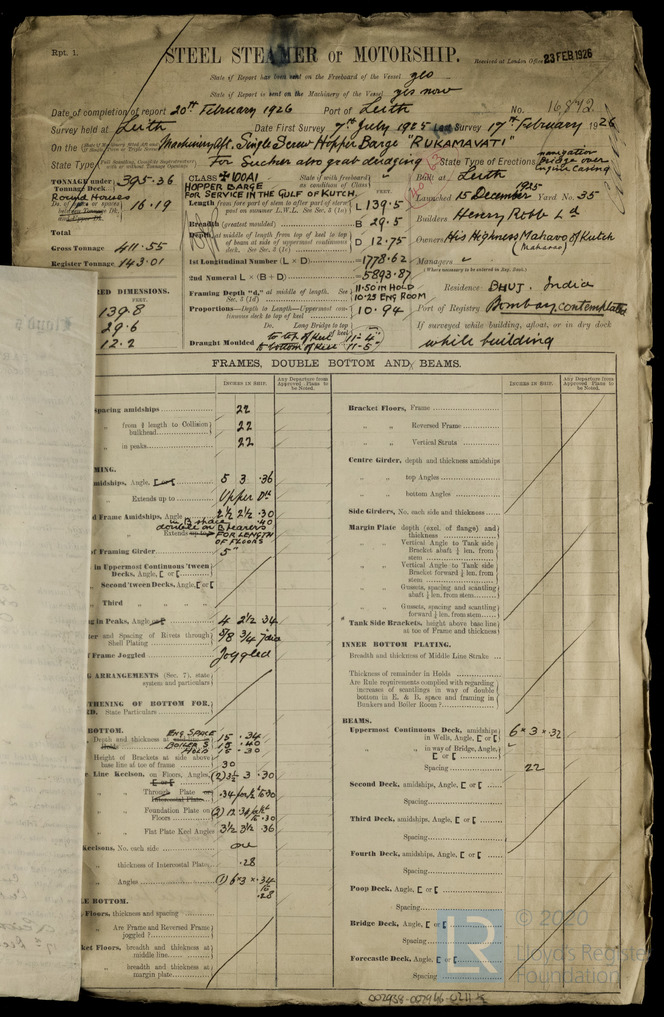 Rpt. 1.
STEEL STEAMER or MOTORSHIP.
Received at London Office 23 FEB 1926
State if Report has been sent on the Freeboard of the Vessel yes
State if Report is sent on the Machinery of the Vessel yes now
Date of completion of report 20th February 1926 Port of Leith No. 16872
Survey held at Leith Date First Survey 7th July 1925 Last Survey 17th February 1926
On the Machinery Aft. Single Screw Hopper Barge "RUKAMAVATI"
State Type For Sucker also grab dredging State Type of Erections navigation Bridge over engine casing
TONNAGE under Tonnage Deck 395.36
Round Houses 16.19
Total
Gross Tonnage 411.55
Register Tonnage 143.01
RED DIMENSIONS.
FEET.
139.8
29.6
12.2
CLASS 100A1 State if with freeboard as condition of Class
HOPPER BARGE
FOR SERVICE IN THE GULF OF KUTCH.
Length from fore part of stem to after part of stern post on summer L.W.L. See Sec. 3 (1c) L 139.5
Breadth (greatest moulded) B 29.5
Depth at middle of length from top of keel to top of beam at side of uppermost continuous deck, See Sec. 3 (1c) D 12.75
1st Longitudinal Number (L × D) 1778.62
2nd Numeral L × (B + D) 5893.87
Framing Depth "d," at middle of length. See Sec. 3 (1d) 11.50 IN HOLD
10.25 ENG ROOM
Proportions—Depth to Length—Uppermost continuous deck to top of keel 10.94
Do. Long Bridge to top of keel
Draught Moulded to top of keel 11'-4"
to bottom of keel 11'-5"
Built at Leith
Launched 15 December 1925 Yard No. 35
Builders Henry Robb Ld
Owners His Highness Maharao of Kutch
(Maharao)
Managers "
(Where necessary to be entered in Reg. Book.)
Residence BHUJ. India
Port of Registry Bombay contemplated
If surveyed while building, afloat, or in dry dock
while building
FRAMES, DOUBLE BOTTOM AND BEAMS.
INCHES IN SHIP.
Any Departure from Approved Plans to be Noted.
INCHES IN SHIP.
Any Departure from Approved Plans to be Noted.
spacing amidships 22
" from ⅕ length to Collision bulkhead 22
" in peaks 22
MING.
amidships, Angle 5 3 .36
" Extends up to Upper Dk
d Frame Amidships, Angle 2½ 2½ .30
in B. space .40
double on Bearers
" Extends FOR LENGTH OF FLOORS
of Framing Girder 5"
in Uppermost Continuous 'tween Decks, Angle, [ or [
Second 'tween Decks, Angle, [ or [
" Third " " "
ng in Peaks, Angle 4 2½ .34
ter and Spacing of Rivets through Shell Plating 5/8 3/4 7 dia
f Frame Joggled Joggled
G ARRANGEMENTS (Sec. 7), state system and particulars
THENING OF BOTTOM FOR-
RD. State Particulars
BOTTOM.
Depth and thickness at ENG SPACE 15 .34
BOILER S 15 .40
HOLD 15 .30
Height of Brackets at side above base line at toe of frame 30
e Line Keelson, on Floors, Angles, [ or [ (2) 3½ 3 .30
" " Through Plate or Intercostal Plate
" " Foundation Plate on Floors
" " Flat Plate Keel Angles 3½ 3½ .36
Keelsons, No. each side one
" thickness of Intercostal Plate .28
" Angles (1) 6 × 3 × .34 to .28
LE BOTTOM.
Floors, thickness and spacing
" Are Frame and Reversed Frame joggled?
ket Floors, breadth and thickness at middle line
" breadth and thickness at margin plate
Bracket Floors, Frame
" " Reversed Frame
" " Vertical Struts
Centre Girder, depth and thickness amidships
" " top Angles
" " bottom Angles
Side Girders, No. each side and thickness
Margin Plate depth (excl. of flange) and thickness
" " Vertical Angle to Tank side Bracket abaft ¼ len. from stem
" " Vertical Angle to Tank side Bracket forward ¼ len. from stem
" " Gussets, spacing and scantling abaft ¼ len. from stem
" " Gussets, spacing and scantling forward ¼ len. from stem
Tank Side Brackets, height above base line at toe of Frame and thickness
INNER BOTTOM PLATING.
Breadth and thickness of Middle Line Strake
Thickness of remainder in Holds
Are Rule requirements complied with regarding increases of scantlings in way of double bottom in E. & B. space and framing in Bunkers and Boiler Room?
BEAMS.
Uppermost Continuous Deck, amidships in Wells, Angle, [ or [ 6 × 3 × .32
" " in way of Bridge, Angle, [ or [ "
Spacing 22
Second Deck, amidships, Angle, [ or [
Spacing
Third Deck, amidships, Angle, [ or [
Spacing
Fourth Deck, amidships, Angle, [ or [
Spacing
Poop Deck, Angle, [ or [
Spacing
Bridge Deck, Angle, [ or [
Spacing
Forecastle Deck, Angle, [ or [
Spacing
LR
© 2020
Lloyd's Register
Foundation
002938-002946-0211